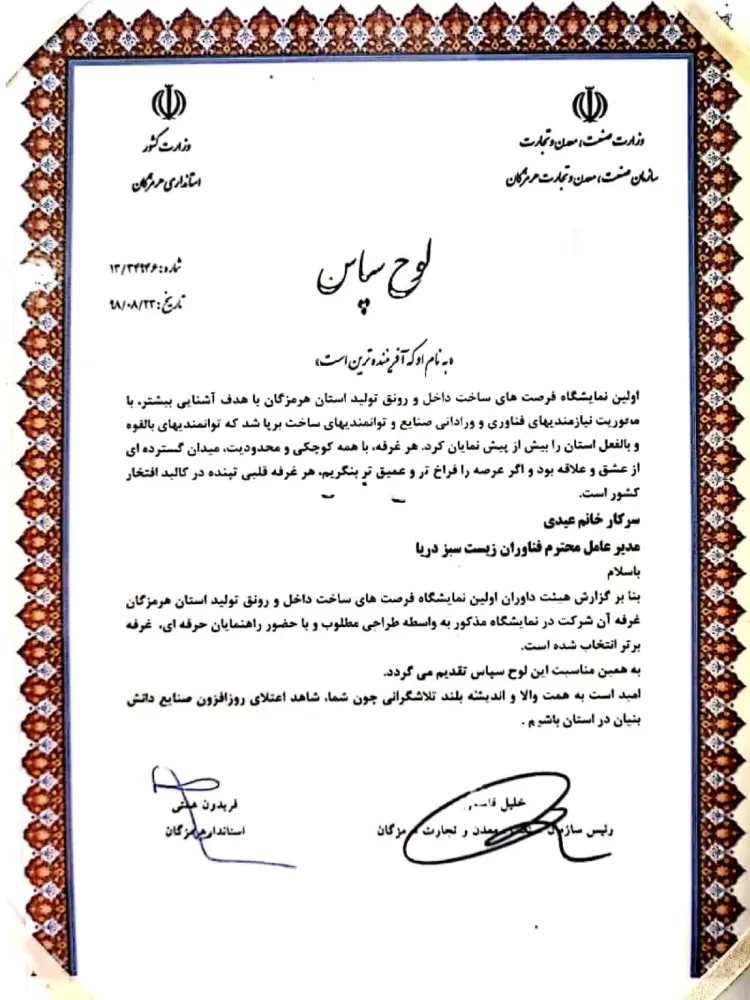 وزارت صنعت، معدن و تجارت
سازمان صنعت، معدن و تجارت هرمزگان
وزارت کشور
استانداری هرمزگان
شماره: ۱۳/۳۴۹۴۶
تاریخ: ۹۸/۰۸/۲۳
لوح سپاس
«به نام او که آفریننده ترین است»
اولین نمایشگاه فرصت های ساخت داخل و رونق تولید استان هرمزگان با هدف آشنایی بیشتر، با
ماموریت نیازمندیهای فناوری و وارداتی صنایع و توانمندیهای ساخت برپا شد که توانمندیهای بالقوه
و بالفعل استان را بیش از پیش نمایان کرد. هر غرفه، با همه کوچکی و محدودیت، میدان گسترده ای
از عشق و علاقه بود و اگر عرصه را فراخ تر و عمیق تر بنگریم، هر غرفه قلبی تپنده در کالبد افتخار
کشور است.
سرکار خانم عیدی
مدیر عامل محترم فناوران زیست سبز دریا
باسلام
بنا بر گزارش هیئت داوران اولین نمایشگاه فرصت های ساخت داخل و رونق تولید استان هرمزگان
غرفه آن شرکت در نمایشگاه مذکور به واسطه طراحی مطلوب و با حضور راهنمایان حرفه ای، غرفه
برتر انتخاب شده است.
به همین مناسبت این لوح سپاس تقدیم می گردد.
امید است به همت والا و اندیشه بلند تلاشگرانی چون شما، شاهد اعتلای روزافزون صنایع دانش
بنیان در استان باشیم .
خلیل قاسمی
رئیس سازمان صنعت معدن و تجارت هرمزگان
فریدون همتی
استاندار هرمزگان